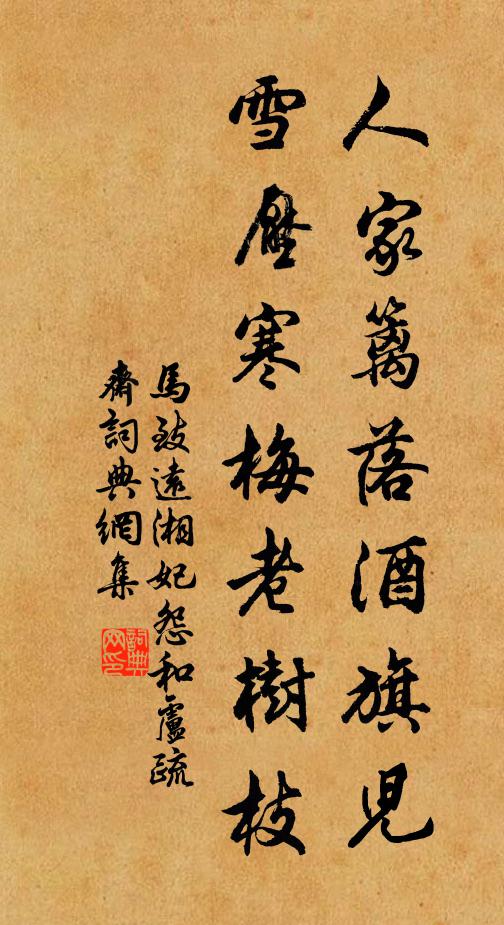 人家篱落酒旗児
雪壓寒梅老樹枝
馬致遠湘妃怨和盧疏
齋詞典網集
詞典网印